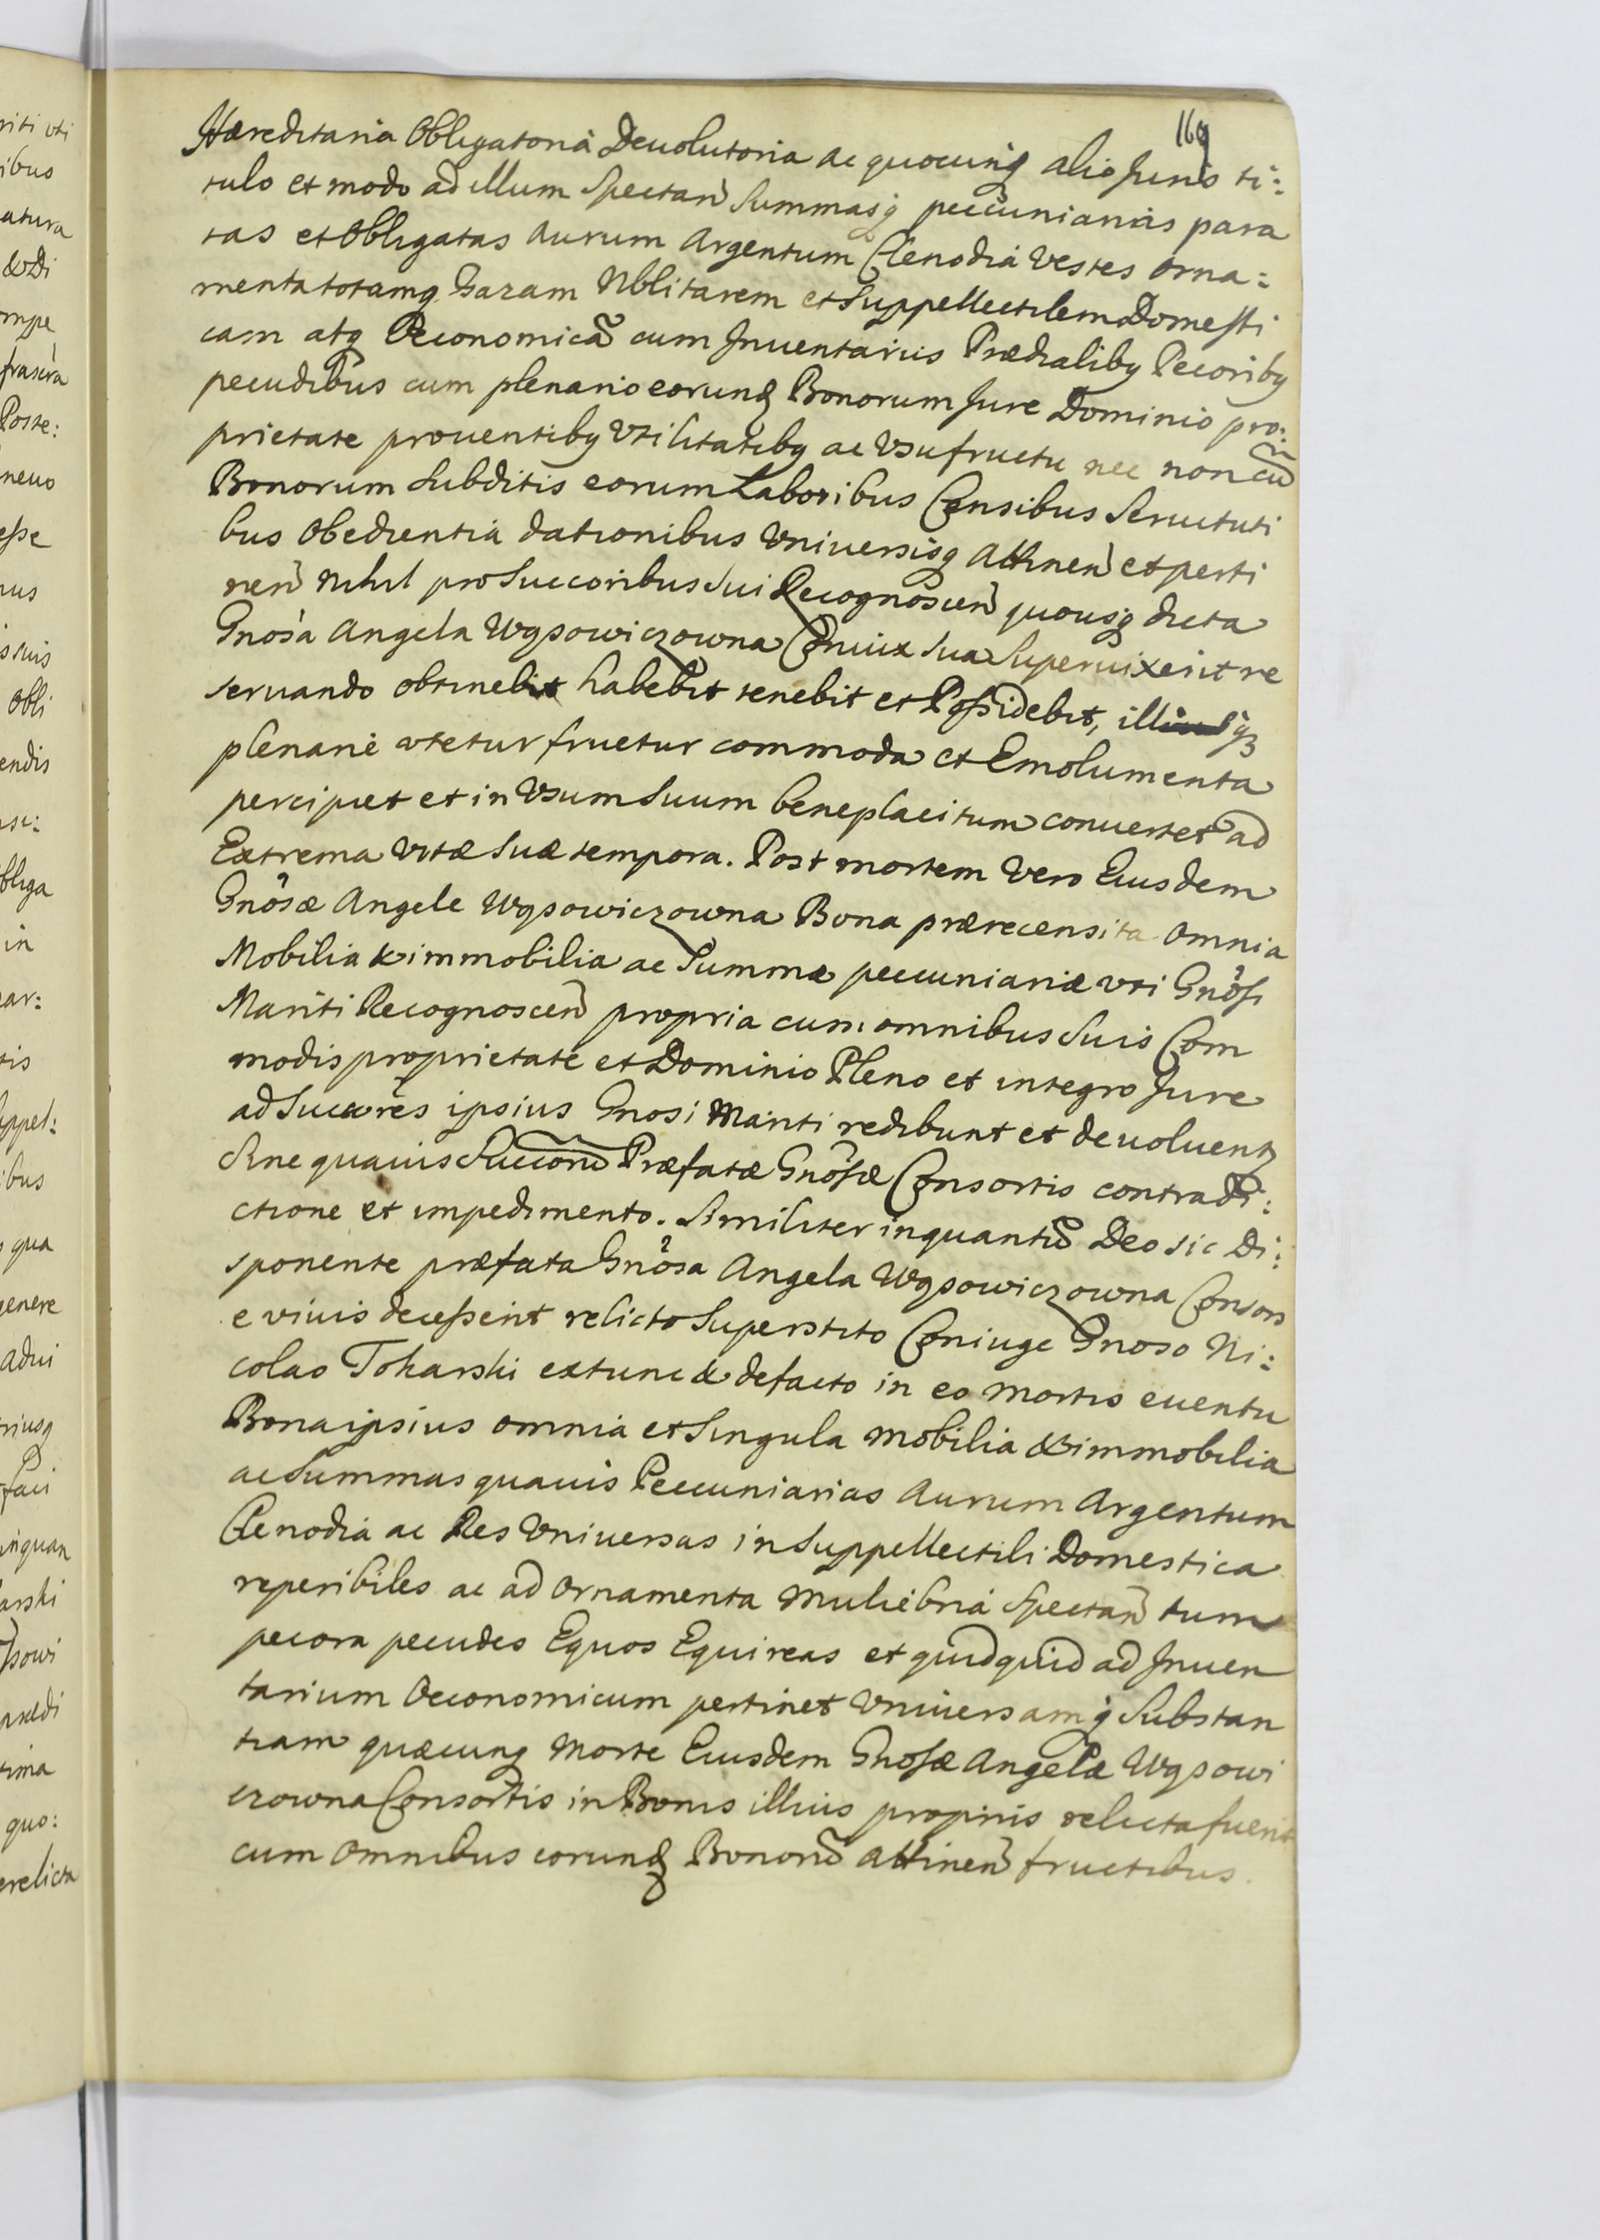 169
Hæreditaria Obligatoria Deuolutoria ac quocunq alio Juris ti:
tulo et modo ad illum Spectan Summasq pecuniarias para
tas et Obligatas Aurum Argentum Clenodia Vestes Orna:
menta totamq Gazam Nblitarem et Suppellectilem Domesti
cam atq Oeconomicã cum Inuentariis Prædialibq Pecoribq
pecudibus cum plenario eorund Bonorum Jure Dominio pro:
prietate prouentibq Vtilitatibq ac Vsufructu nec non cũ
Bonorum Subditis eorum Laboribus Censibus Seruituti
bus Obedientia dationibus Vniuersisq Attinen et perti
nen nihil pro Succoribus Sui Recognoscen quousq dicta
Gnosa Angela Wąsowiczowna Coniux Sua Superuixerit re
seruando obtinebit habebit tenebit et Possidebit, illisq3
plenarie vtetur fruetur commoda et Emolumenta
percipiet et in Vsum Suum beneplacitum conuertet ad
Extrema Vitæ Suæ tempora. Post mortem Vero Eiusdem
Gnosæ Angele Wąsowiczowna Bona prærecensita omnia
Mobilia & immobilia ac Summæ pecuniariæ vti Gnosi
Mariti Recognoscen propria cum omnibus Suis Com
modis proprietate et Dominio Pleno et integro Jure
ad Succores ipsius Gnosi Mariti redibunt et deuoluent
Sine quauis Succorũ Præfatæ Gnosæ Consortis contradi:
ctione et impedimento. Similiter inquantũ Deo sic Di:
sponente præfata Gnosa Angela Wąsowiczowna Consors
e viuis decesserit relicto Superstito Coniuge Gnoso Ni:
colao Tokarski extunc & defacto in eo mortis euentu
Bona ipsius omnia et Singula mobilia & immobilia
ac Summas quauis Pecuniarias Aurum Argentum
Clenodia ac Res Vniuersas in Suppellectili Domestica
reperibiles ac ad Ornamenta Muliebria Spectan tum
pecora pecudes Equos Equireas et quidquid ad Inuen
tarium Oeconomicum pertinet Vniuersamq Substan
tiam quæcunq morte Eiusdem Gnosæ Angelæ Wąsowi
czowna Consortis in Bonis illius propriis relicta fuerit
cum omnibus eorund Bonorũ attinen fructibus.